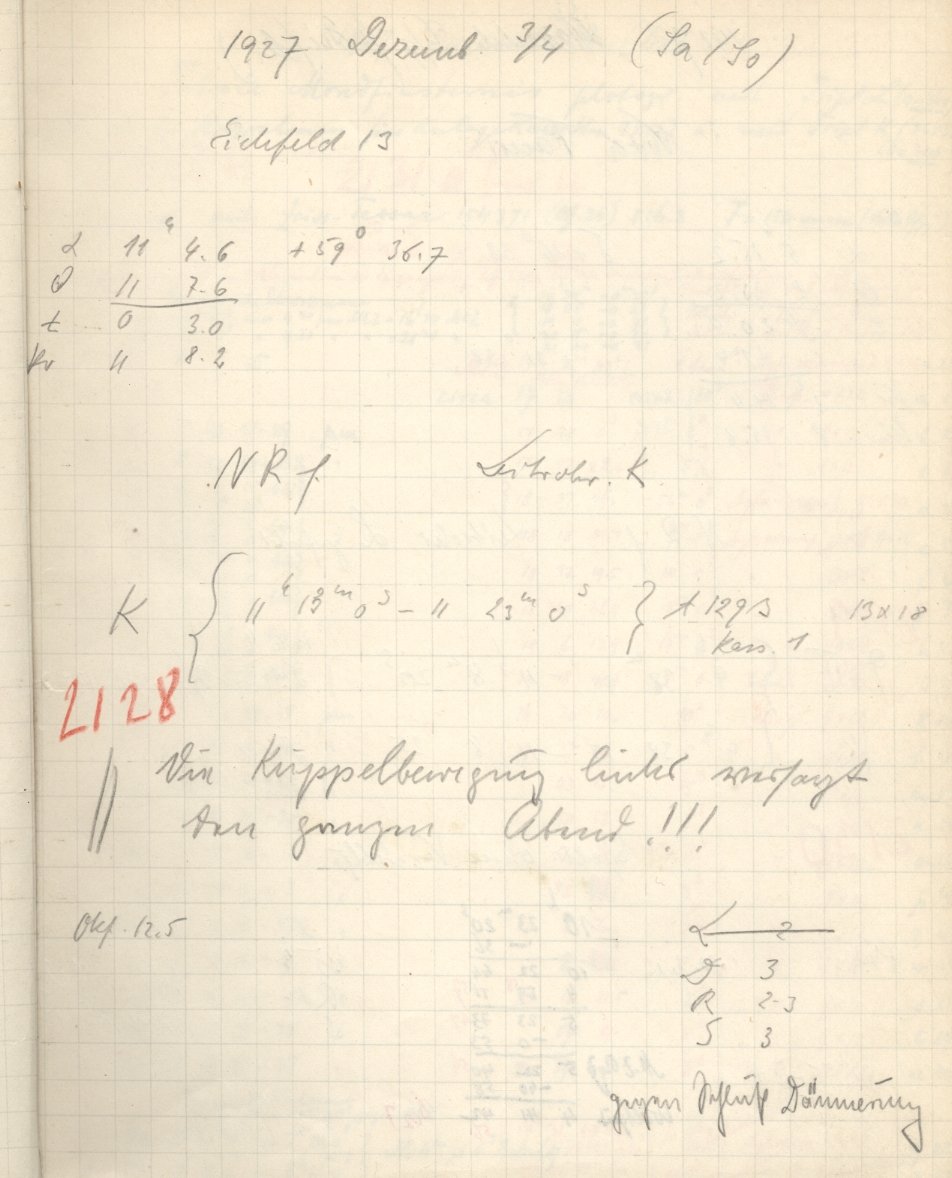 1927 Dezemb. 3/4 (Sa/So)
Eichfeld 13
α 11ʰ 4.6 +59° 36.7
ϑ 11 7.6
t 0 3.0
Kr 11 8.2
NRf. Leitrohr. K
K { 11ʰ 13ᵐ 0ˢ – 11 23ᵐ 0ˢ } A 1293 13x18
Kass. 1
2128
Die Kuppelbewegung links versagt
den ganzen Abend!!!
Okf. 12.5
L 2
D 3
R 2-3
S 3
gegen Schluß Dämmerung